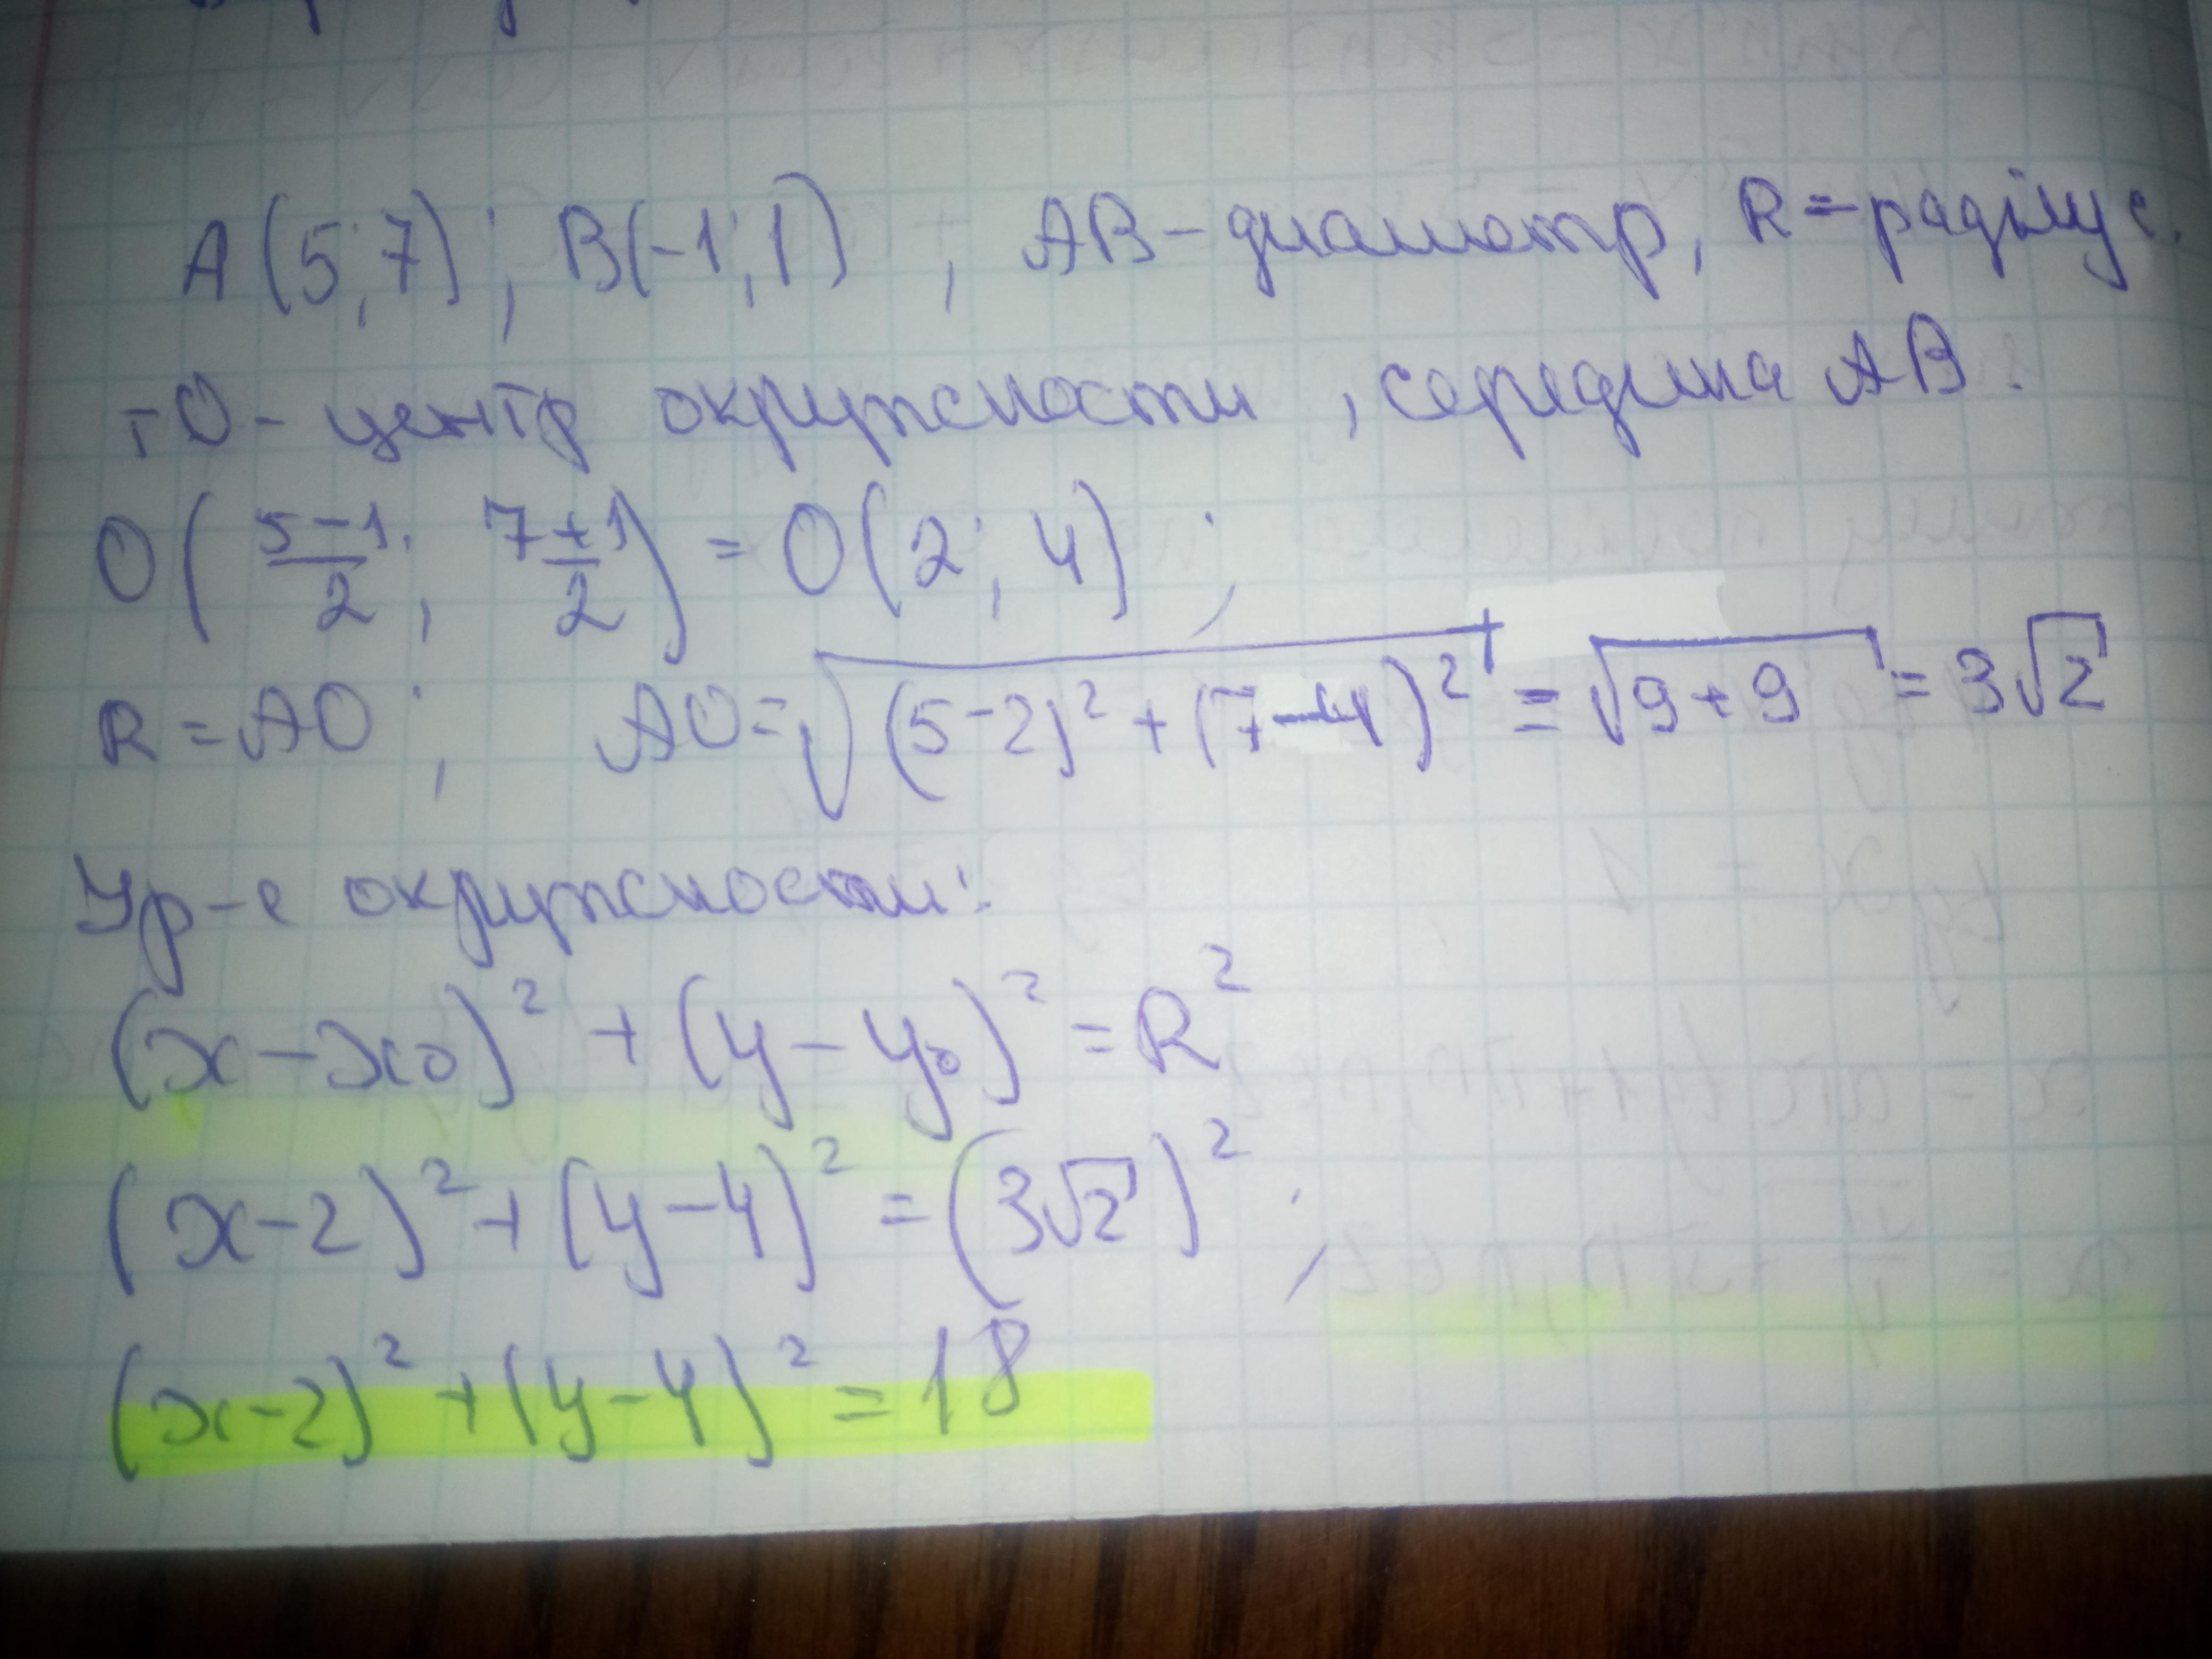 A(5;7); B(-1;1), AB-диаметр, R=радиус.
тО- центр окружности, середина AB.
O((5-1)/2; (7+1)/2) = O(2; 4);
R = AO; AO=√((5-2)²+(7-4)²) = √(9+9) = 3√2
Ур-е окружности:
(x-x₀)² + (y-y₀)² = R²
(x-2)²+(y-4)² = (3√2)²;
(x-2)²+(y-4)² = 18